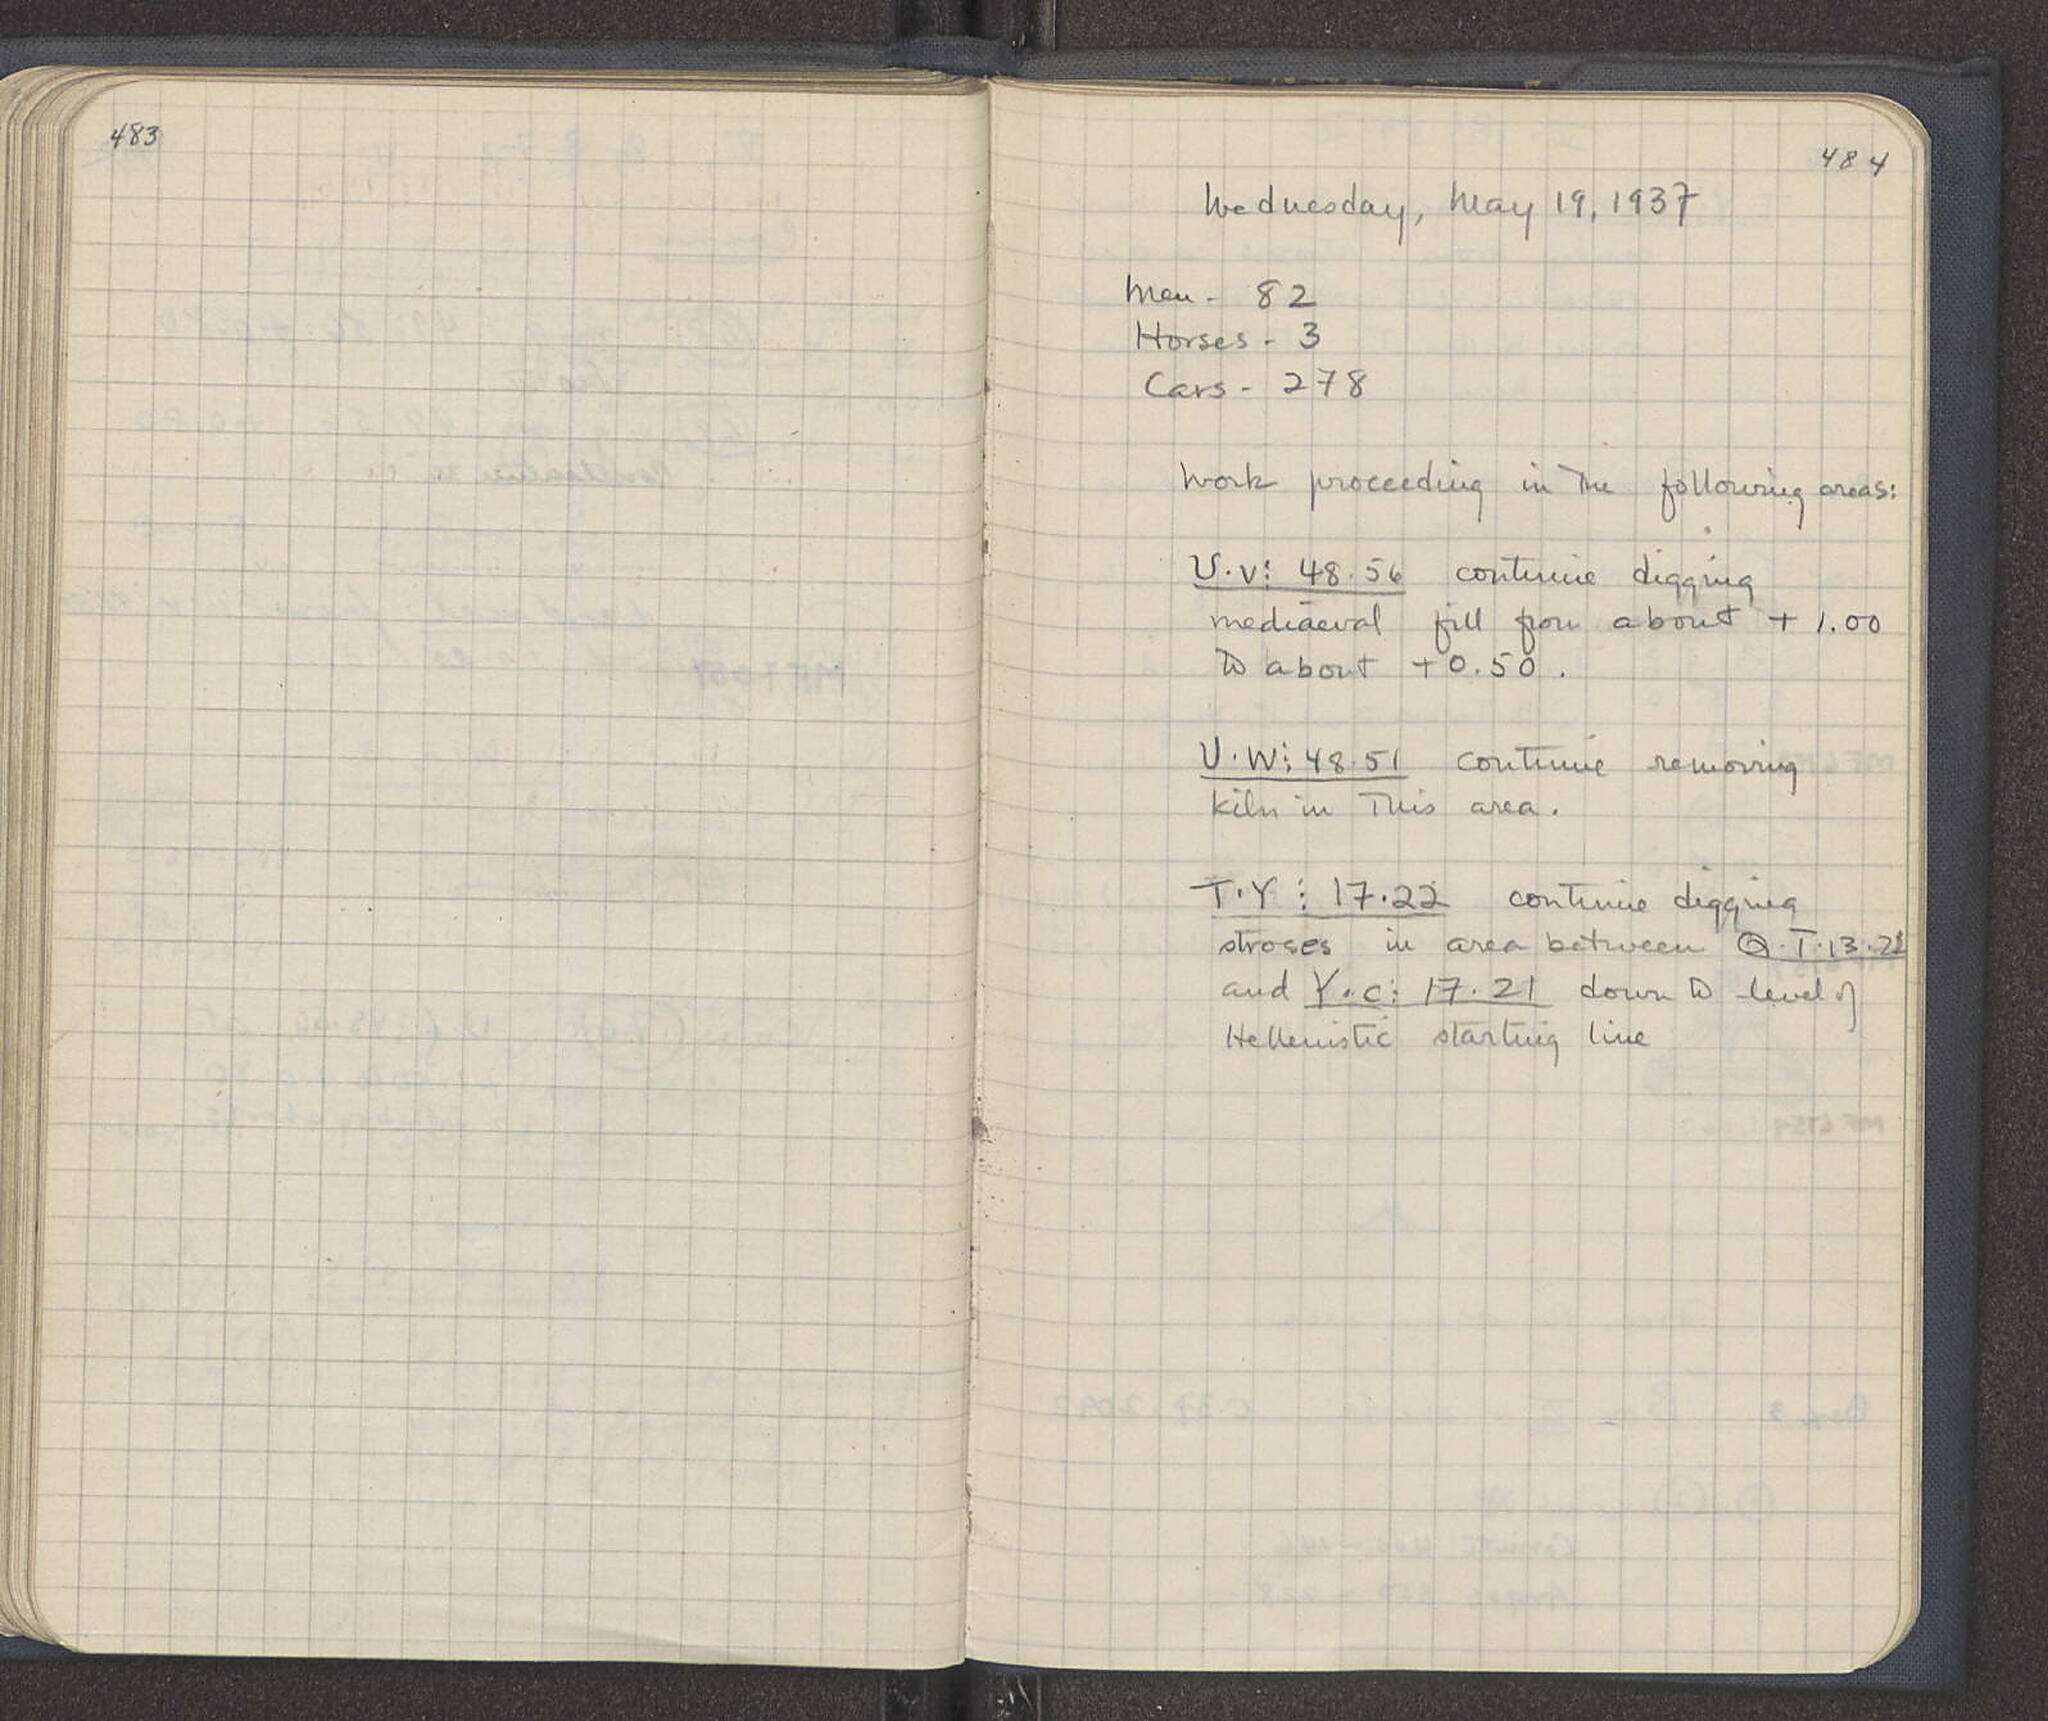 483
484
Wednesday, May 19, 1937
Men - 82
Horses - 3
Cars - 278
Work proceeding in the following areas:
U.V: 48.56 continue digging
mediaeval fill from about + 1.00
to about +0.50.
U.W: 48.51 continue removing
kiln in this area.
T.Y: 17.22 continue digging
stroses in area between Q.T.13.21
and Y.C: 17.21 down to level of
Hellenistic starting line